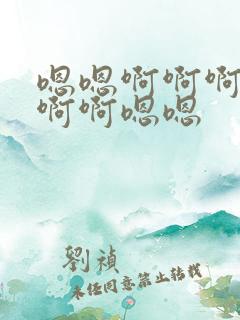 嗯嗯啊啊啊
啊啊嗯嗯
劉禎
未经同意禁止转载